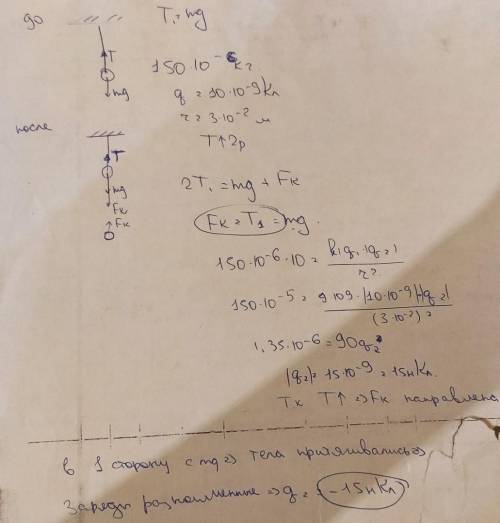 до
T₁=mg
T
mg
150·10⁻⁶кг
q=10·10⁻⁹Кл
r=3·10⁻² м
T↑2р
после
T
mg
Fк
Fк
2T₁=mg+Fк
Fк=T₁=mg.
150·10⁻⁶·10=k|q₁||q₂|/r²
150·10⁻⁵=9·10⁹·|10·10⁻⁹||q₂|/(3·10⁻²)²
1,35·10⁻⁶=90q₂
|q₂|=15·10⁻⁹=15нКл.
Тк T↑ ⇒ Fк направлена
в 1 сторону с mg ⇒ тела притягивались ⇒
Заряды разноименные ⇒ q₂=-15нКл